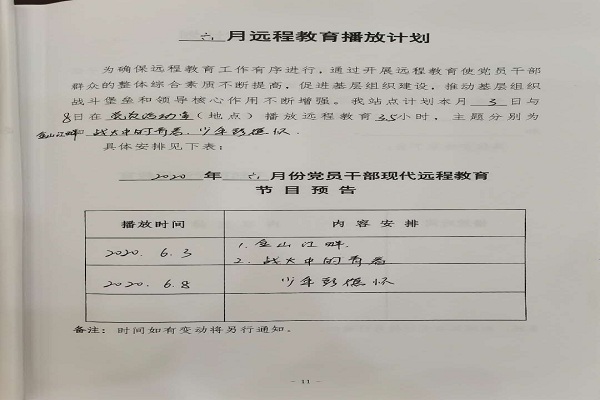 六 月远程教育播放计划
为确保远程教育工作有序进行，通过开展远程教育使党员干部
群众的整体综合素质不断提高，促进基层组织建设，推动基层组织
战斗堡垒和领导核心作用不断增强。我站点计划本月 3 日与
8日在 党员活动室（地点）播放远程教育 3.5小时，主题分别为
金山江畔 战火中的青春、少年彭德怀.
具体安排见下表：
2020 年 六 月份党员干部现代远程教育
节目预告
播放时间 内容安排
2020. 6. 3 1. 金山江畔.
2. 战火中的青春
2020. 6.8 少年彭德怀
备注：时间如有变动将另行通知.
- 11 -